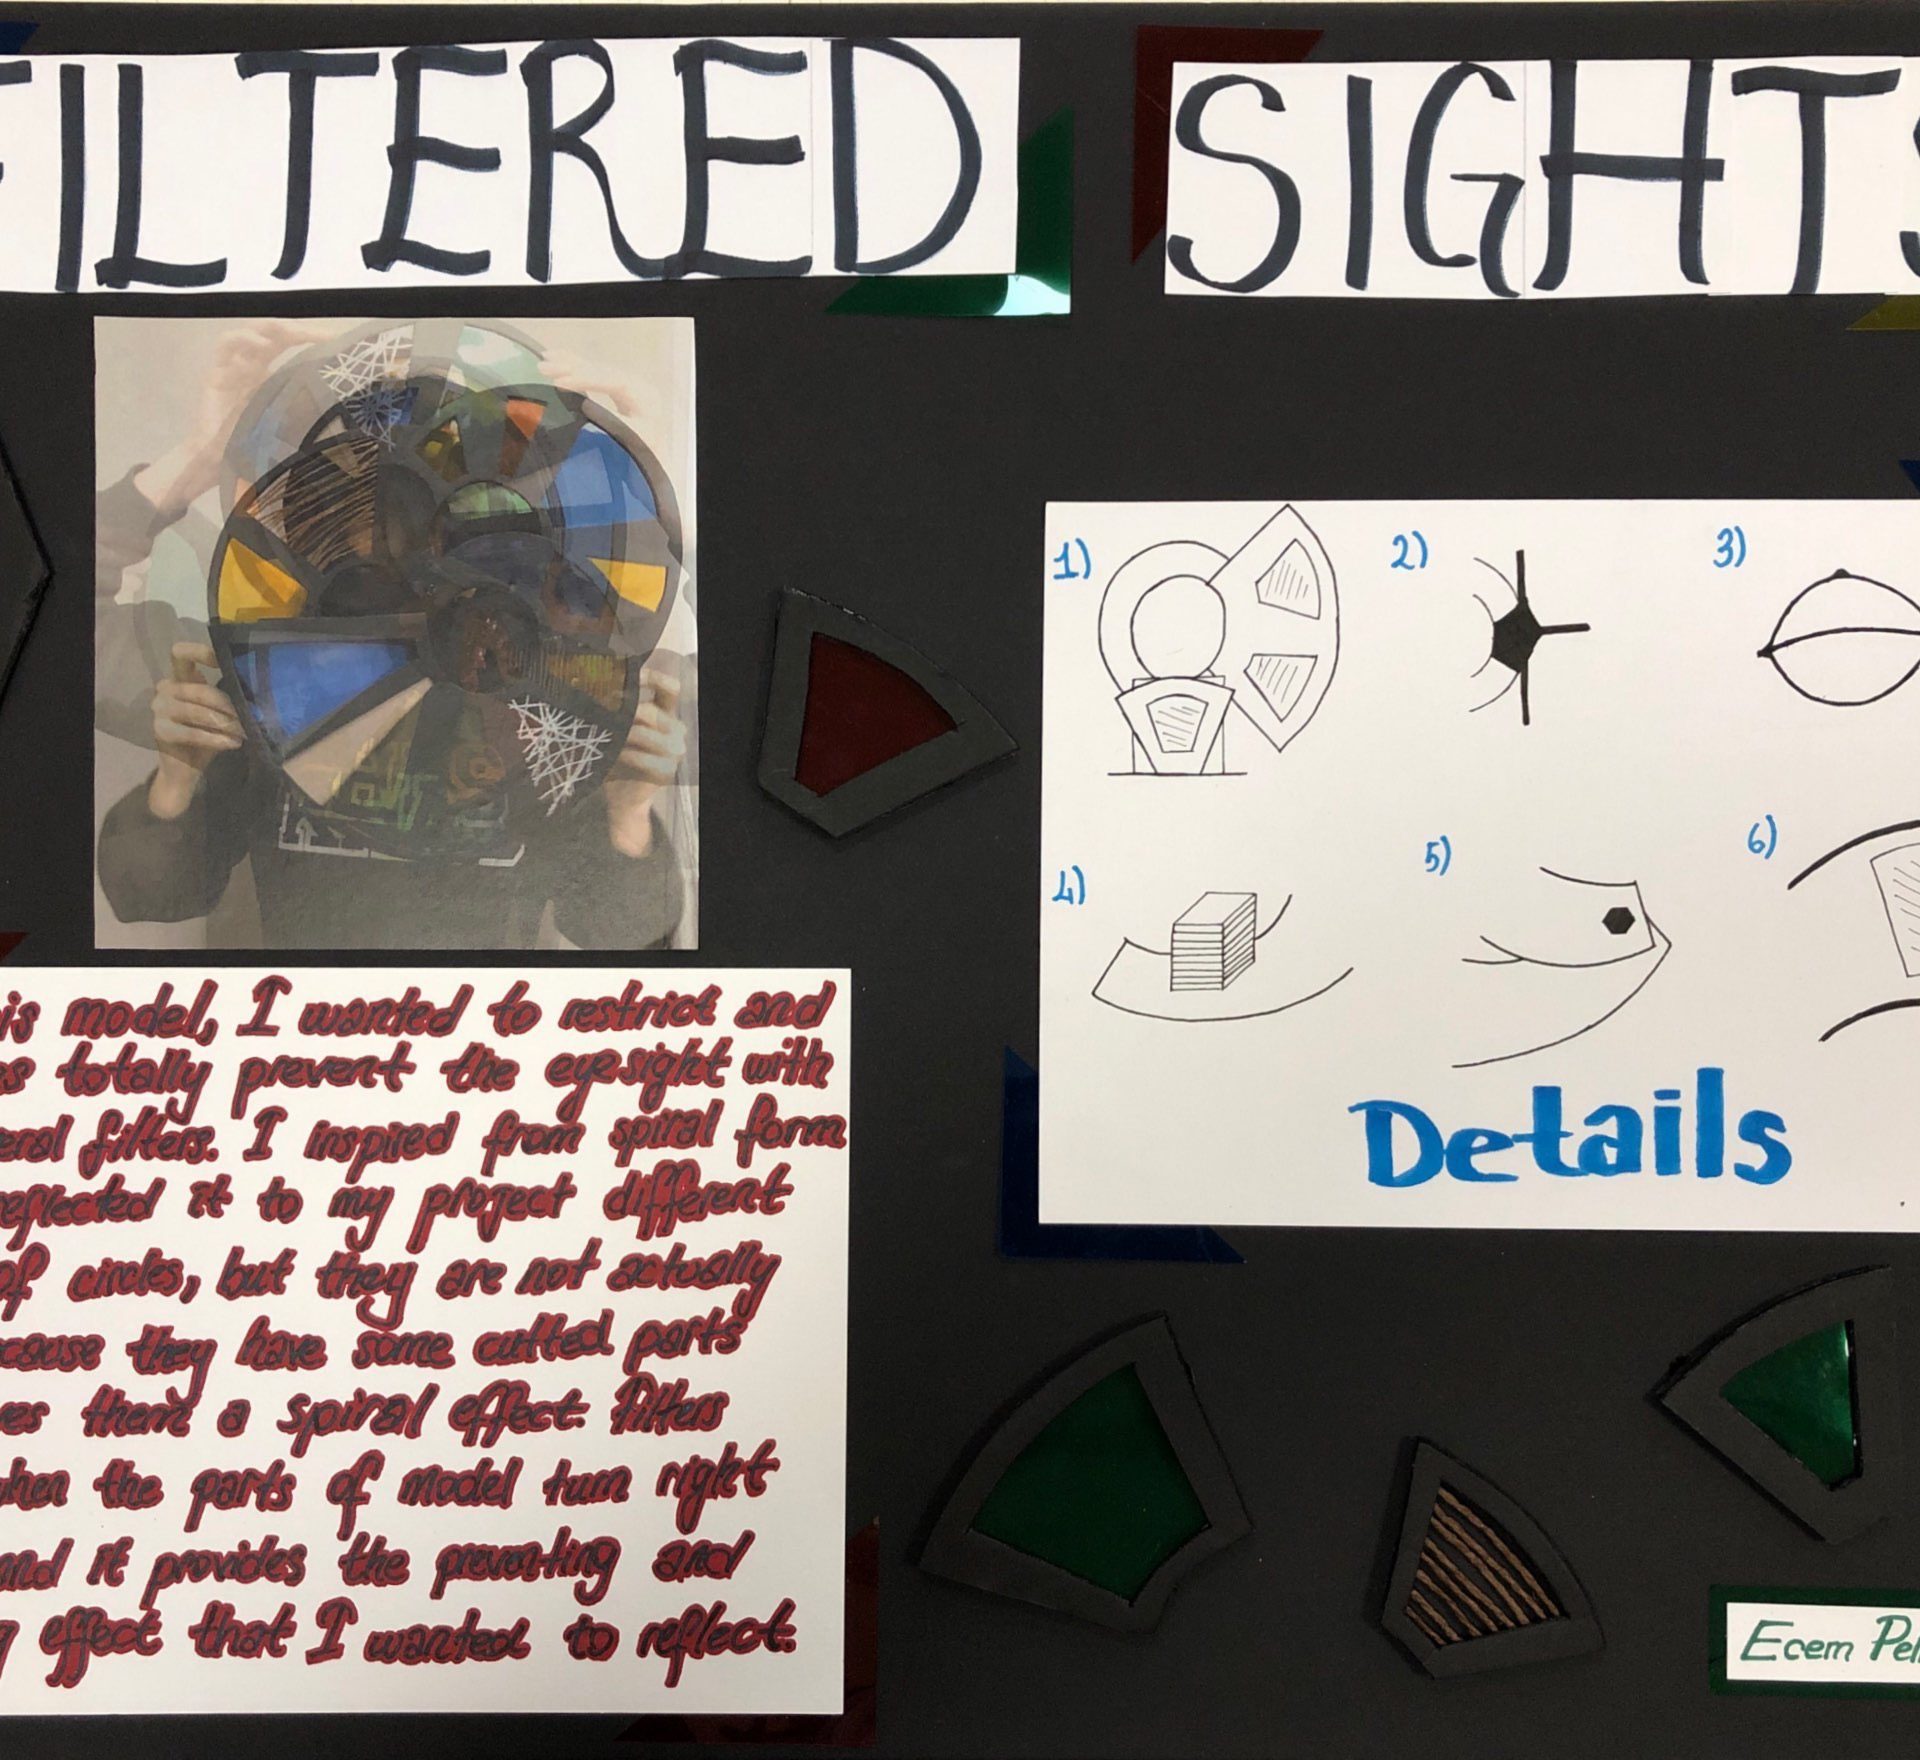 FILTERED SIGHTS
1) 2) 3)
4) 5) 6)
Details
is model, I wanted to restrict and
totally prevent the eyesight with
eral filters. I inspired from spiral form
eflected it to my project different
of circles, but they are not actually
cause they have some cutted parts
es them a spiral effect. Filters
when the parts of model turn right
and it provides the preventing and
g effect that I wanted to reflect.
Ecem Pel